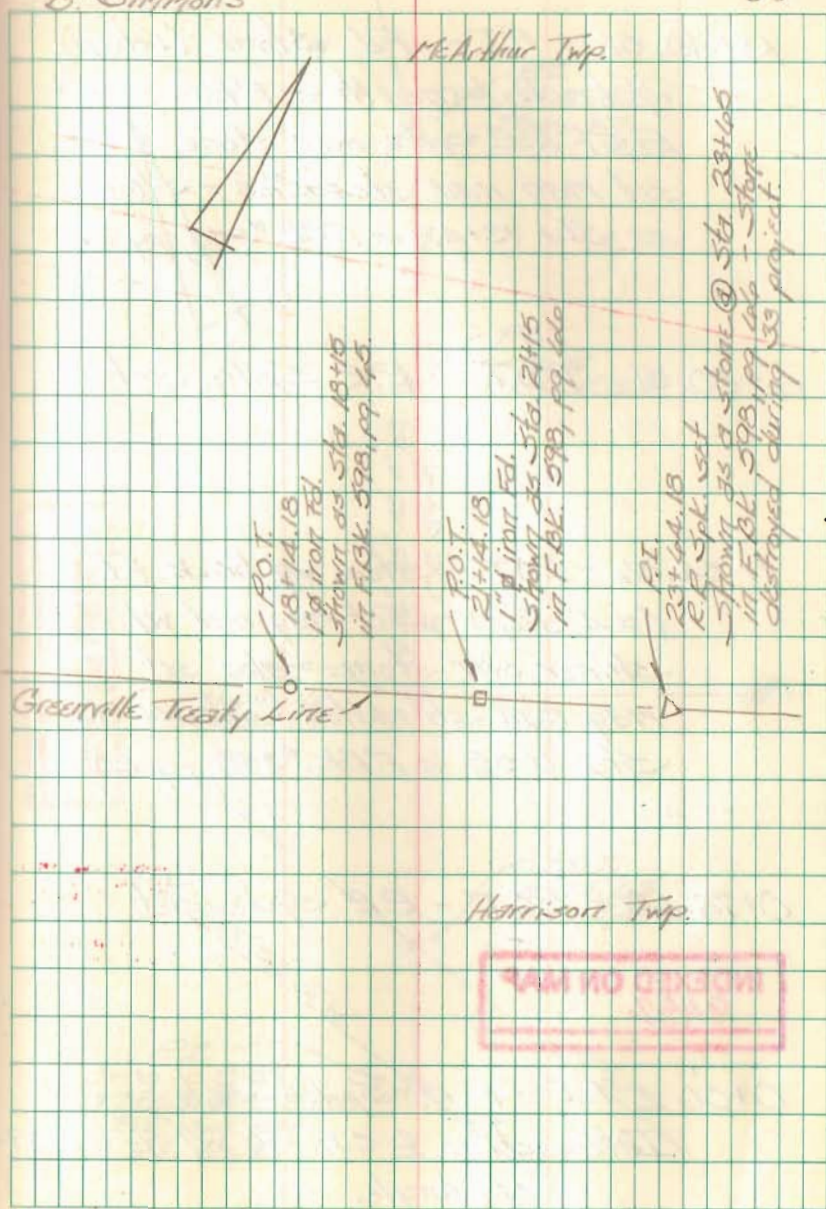 B. Simmons
McArthur Twp.
P.O.T.
18+14.18
1"ø iron Fd.
Shown as Sta. 18+15
in F.BK. 598, pg. 65.
P.O.T.
21+14.18
1"ø iron Fd.
Shown as Sta 21+15
in F.BK. 598, pg. 66
P.I.
23+64.18
R.R. Spk. set
Shown as a stone @ Sta. 23+65
in F.BK. 598, pg. 66 - Stone
destroyed during '33 project.
Greenville Treaty Line
Harrison Twp.
INDEXED ON MAP